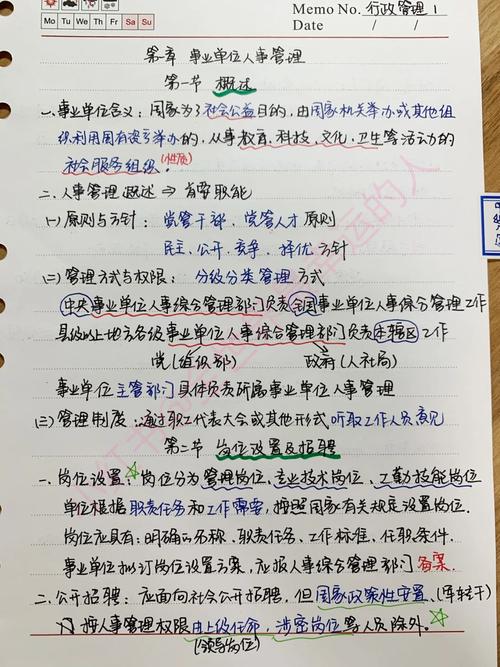 Memo No. 行政管理 1
Mo Tu We Th Fr Sa Su
Date / /
第 章 事业单位人事管理
第一节 概述
一、事业单位含义：国家为了社会公益目的，由国家机关举办或其他组
织利用国有资产举办的，从事教育、科技、文化、卫生等活动的
社会服务组织。(性质)
二、人事管理概述 ⇒ 有啥职能
(一) 原则与方针：党管干部、党管人才原则
民主、公开、竞争、择优方针
(二) 管理方式与权限：分级分类管理方式
中央事业单位人事综合管理部门负责全国事业单位人事综合管理工作
县级以上地方各级事业单位人事综合管理部门负责本辖区工作
党(组织部) 政府(人社局)
事业单位主管部门具体负责所属事业单位人事管理
(三) 管理制度：通过职工代表大会或其他形式听取工作人员意见
第二节 岗位设置及招聘
一、岗位设置：☆岗位分为管理岗位、专业技术岗位、工勤技能岗位
单位根据职责任务和工作需要，按照国家有关规定设置岗位.
岗位应具有：明确的名称、职责任务、工作标准、任职条件.
事业单位拟订岗位设置方案，应报人事综合管理部门备案.
二、公开招聘：应面向社会公开招聘，但国家政策性安置、(军转干)
按人事管理权限由上级任命，涉密岗位等人员除外。☆
(领导岗位)